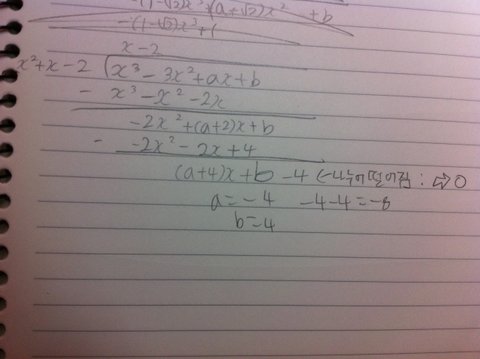 x-2
x²+x-2 x³-3x²+ax+b
- x³-x²-2x
-2x²+(a+2)x+b
- -2x²-2x+4
(a+4)x+b-4 (-나누어떨어짐: ⇨0
a=-4 -4-4=-8
b=4